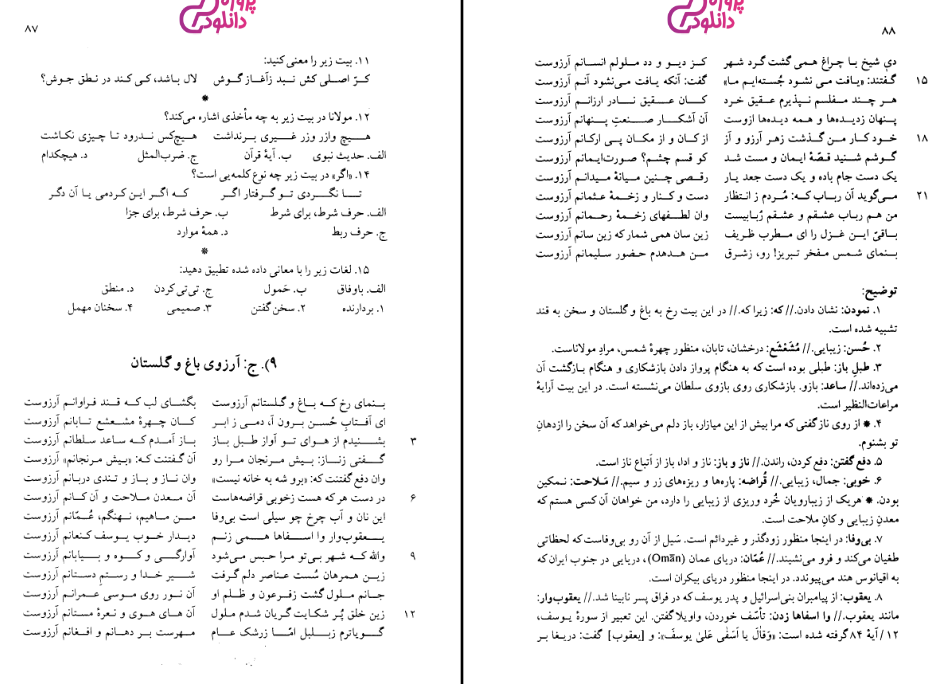 پروژه
دانلود
۸۷
۱۱. بیت زیر را معنی کنید:
کرّ اصلی کش نبد زآغاز گوش لال باشد، کی کند در نطق جوش؟
*
۱۲. مولانا در بیت زیر به چه مأخذی اشاره می‌کند؟
هیچ وازر وزر غیری برنداشت هیچ‌کس ندرود تا چیزی نکاشت
الف. حدیث نبوی ب. آیهٔ قرآن ج. ضرب‌المثل د. هیچکدام
۱۴. «اگر» در بیت زیر چه نوع کلمه‌یی است؟
تا نگردی تو گرفتار اگر که اگر این کردمی یا آن دگر
الف. حرف شرط، برای شرط ب. حرف شرط، برای جزا
ج. حرف ربط د. همهٔ موارد
*
۱۵. لغات زیر را با معانی داده شده تطبیق دهید:
الف. باوفاق ب. خمول ج. تی‌تی کردن د. منطق
۱. بردارنده ۲. سخن گفتن ۳. صمیمی ۴. سخنان مهمل
۹). ج: آرزوی باغ و گلستان
بنمای رخ که باغ و گلستانم آرزوست بگشای لب که قند فراوانم آرزوست
ای آفتابِ حُسن برون آ، دمی ز ابر کان چهرهٔ مشعشع تابانم آرزوست
۳ بشنیدم از هوای تو آواز طبل باز باز آمدم که ساعد سلطانم آرزوست
گفتی زناز: بیش مرنجان مرا رو آن گفتنت که: «بیش مرنجانم» آرزوست
وان دفع گفتنت که: «برو شه به خانه نیست» وان ناز و باز و تندی دربانم آرزوست
۶ در دست هر که هست زخوبی قراضه‌هاست آن معدن ملاحت و آن کانم آرزوست
این نان و آب چرخ چو سیلی است بی‌وفا من ماهیم، نهنگم، عُمّانم آرزوست
یعقوب‌وار وا اسفاها همی زنم دیدار خوب یوسف کنعانم آرزوست
۹ والله که شهر بی‌تو مرا حبس می‌شود آوارگی و کوه و بیابانم آرزوست
زین همرهان سُست عناصر دلم گرفت شیر خدا و رستم دستانم آرزوست
جانم ملول گشت زفرعون و ظلم او آن نور روی موسی عمرانم آرزوست
۱۲ زین خلق پُر شکایت گریان شدم ملول آن های هوی و نعرهٔ مستانم آرزوست
گویاترم زبلبل امّا زرشک عام مهرست بر دهانم و افغانم آرزوست
پروژه
دانلود
۸۸
دی شیخ با چراغ همی گشت گرد شهر کز دیو و دد ملولم انسانم آرزوست
۱۵ گفتند: «یافت می نشود جُسته‌ایم ما» گفت: آنکه یافت می‌نشود آنم آرزوست
هر چند مفلسم نپذیرم عقیق خرد کان عقیق نادر ارزانم آرزوست
پنهان زدیده‌ها و همه دیده‌ها ازوست آن آشکار صنعتِ پنهانم آرزوست
۱۸ خود کار من گذشت زهر آرزو و آز از کان و از مکان پی ارکانم آرزوست
گوشم شنید قصّهٔ ایمان و مست شد کو قسم چشم؟ صورت‌ایمانم آرزوست
یک دست جام باده و یک دست جعد یار رقصی چنین میانهٔ میدانم آرزوست
۲۱ می‌گوید آن رباب که: مُردم ز انتظار دست و کنار و زخمهٔ عثمانم آرزوست
من هم رباب عشقم و عشقم رُبابیست وان لطفهای زخمهٔ رحمانم آرزوست
باقیّ این غزل را ای مطرب ظریف زین سان همی شمار که زین سانم آرزوست
بنمای شمس مفخر تبریز! رو، زشرق من هدهدم حضور سلیمانم آرزوست
توضیح:
۱. نمودن: نشان دادن.// که: زیرا که.// در این بیت رخ به باغ و گلستان و سخن به قند
تشبیه شده است.
۲. حُسن: زیبایی.// مُشَعْشَع: درخشان، تابان، منظور چهرهٔ شمس، مرادِ مولاناست.
۳. طبلِ باز: طبلی بوده است که به هنگام پرواز دادن بازشکاری و هنگام بازگشت آن
می‌زده‌اند.// ساعد: بازو. بازشکاری روی بازوی سلطان می‌نشسته است. در این بیت آرایهٔ
مراعات‌النظیر است.
۴. * از روی ناز گفتی که مرا بیش از این میازار، باز دلم می‌خواهد که آن سخن را ازدهانِ
تو بشنوم.
۵. دفع گفتن: دفع کردن، راندن.// ناز و باز: ناز و ادا، باز از اَتباع ناز است.
۶. خوبی: جمال، زیبایی.// قُراضه: پاره‌ها و ریزه‌های زر و سیم.// مَلاحت: نمکین
بودن. * هریک از زیبارویان خُرد وریزی از زیبایی را دارد، من خواهان آن کسی هستم که
معدنِ زیبایی و کانِ ملاحت است.
۷. بی‌وفا: در اینجا منظور زودگذر و غیردائم است. سَیل از آن رو بی‌وفاست که لحظاتی
طغیان می‌کند و فرو می‌نشیند.// عُمّان: دریای عمان (Omān)، دریایی در جنوب ایران که
به اقیانوس هند می‌پیوندد. در اینجا منظور دریای بیکران است.
۸. یعقوب: از پیامبران بنی‌اسرائیل و پدر یوسف که در فراق پسر نابینا شد.// یعقوب‌وار:
مانند یعقوب.// وا اسفاها زدن: تأسّف خوردن، واویلا گفتن. این تعبیر از سورهٔ یوسف،
۱۲ / آیهٔ ۸۴ گرفته شده است: «وَقٰالَ یا اَسَفٰی عَلیٰ یوسفَ»: و [یعقوب] گفت: دریغا بر